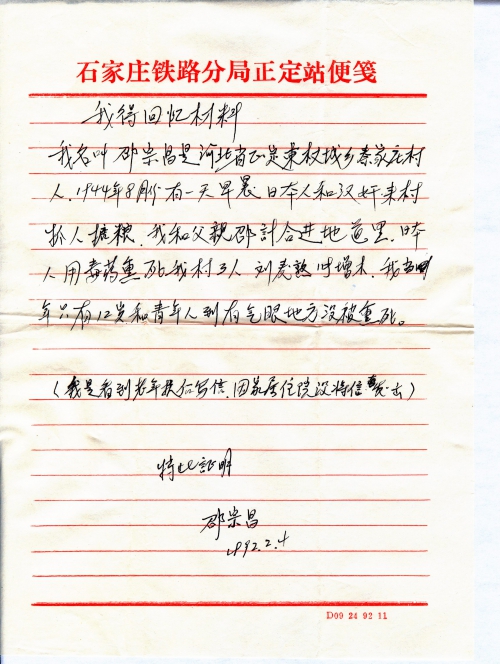 石家庄铁路分局正定站便笺
我得回忆材料
我名叫邵宗昌是河北省正定東权城乡秦家庄村
人.1944年8月份有一天早晨日本人和汉奸来村
抓人搶粮.我和父親邵計合进地道里.日本
人用毒药熏死我村3人刘 熟 增木.我当时
年只有12岁和青年人到有气眼地方没被熏死。
(我是看到老年 后写信.因家居住院没将信 去)
特此証明
邵宗昌
1992.2.4
D09 24 92 11